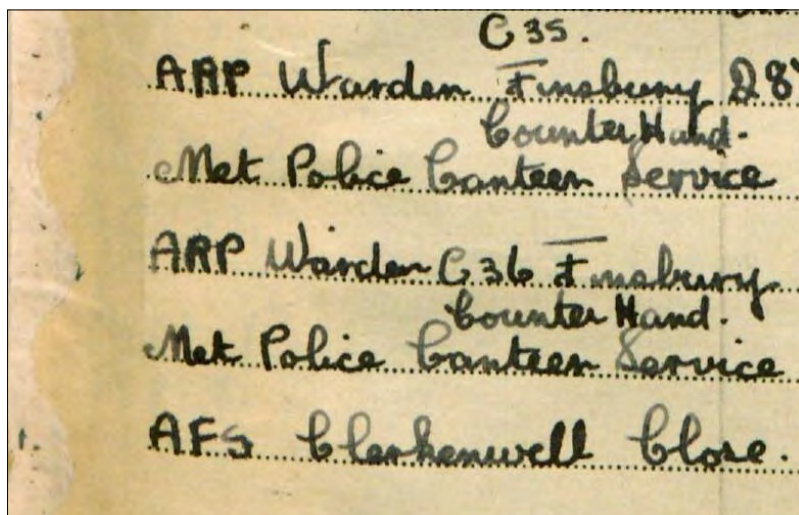 C 35.
ARP Warden Finsbury D 8
Counter Hand.
Met Police Canteen Service
ARP Warden C 36 Finsbury.
Counter Hand.
Met Police Canteen Service
AFS Clerkenwell Close.